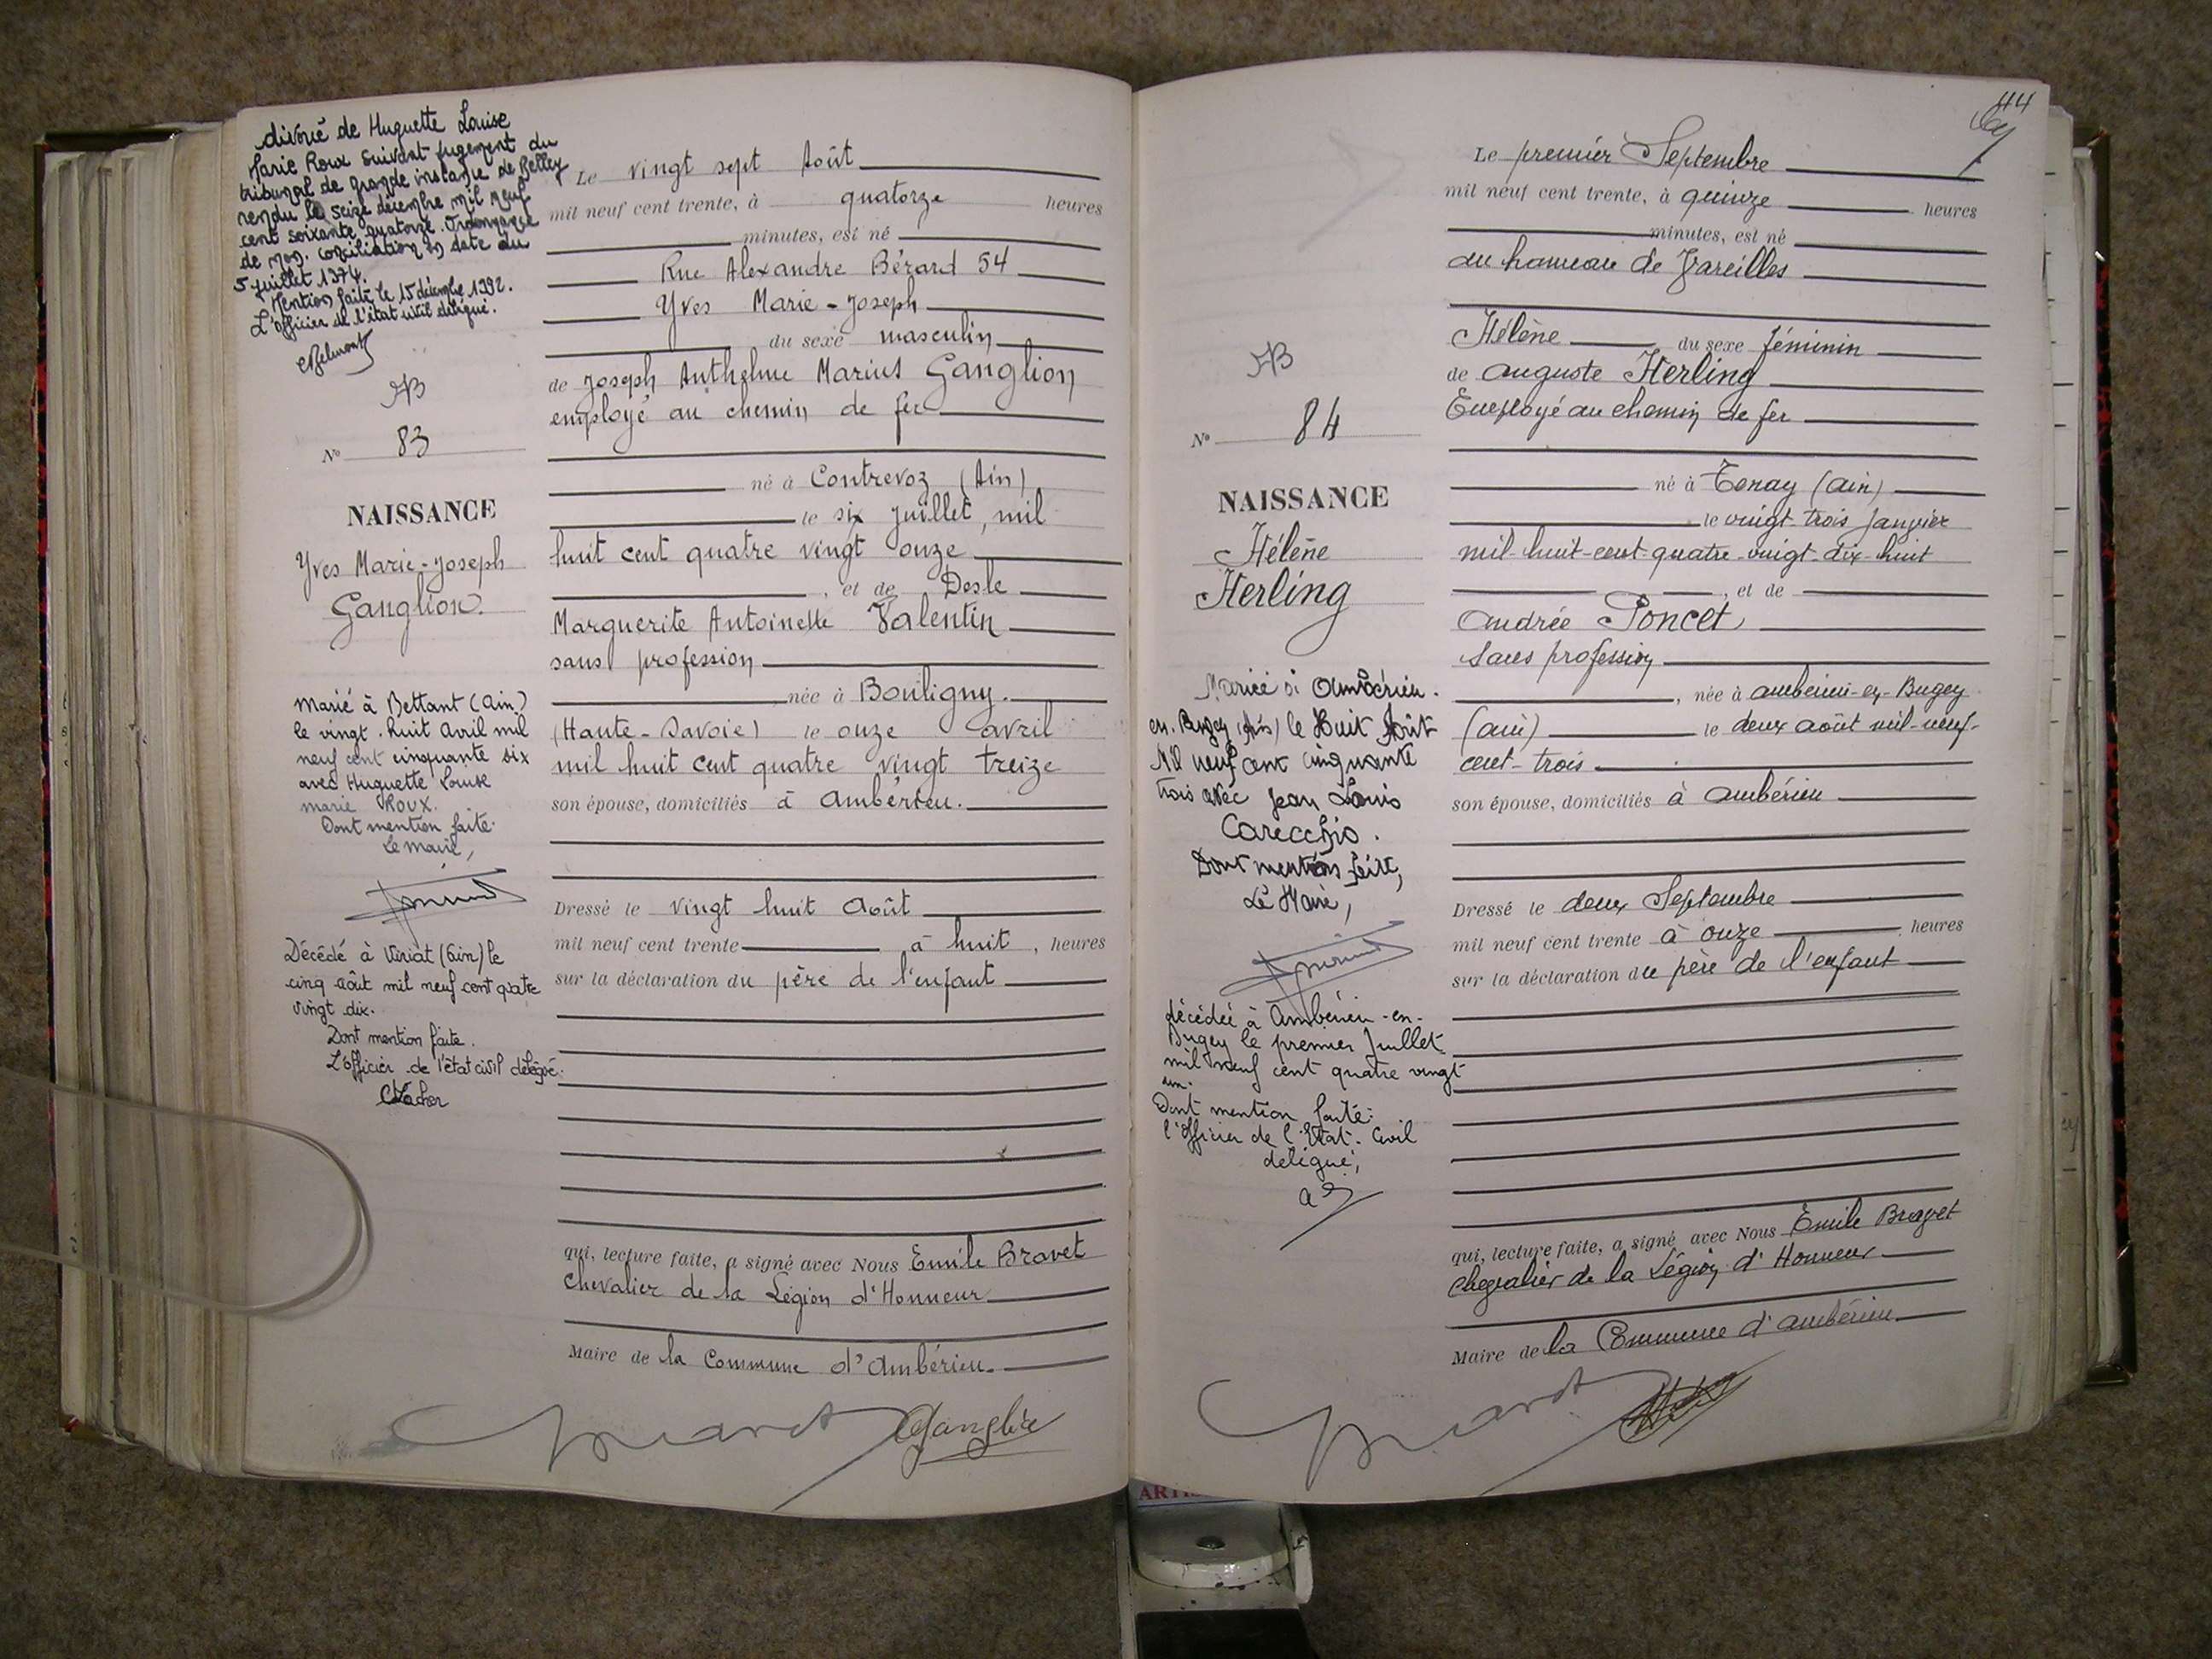 divorcé de Huguette Louise
Marie Roux suivant jugement du
tribunal de grande instance de Belley
rendu le seize décembre mil neuf
cent soixante quatorze. Ordonnance
de non. conciliation en date du
5 juillet 1974.
Mention faite le 15 décembre 1992.
L'officier de l'état civil délégué.
AB
Nº 83
NAISSANCE
Yves Marie-Joseph
Ganglion.
marié à Bettant (Ain)
le vingt. huit Avril mil
neuf cent cinquante six
avec Huguette Louise
marie ROUX.
Dont mention faite.
Le maire,
Décédé à Viriat (Ain) le
cinq août mil neuf cent quatre
vingt dix.
Dont mention faite.
L'officier de l'état civil délégué.
Le vingt sept Août
mil neuf cent trente, à quatorze heures
minutes, est né
Rue Alexandre Bérard 54
Yves Marie-Joseph
du sexe masculin
de Joseph Anthelme Marius Ganglion
employé au chemin de fer
né à Contrevoz (Ain)
le six Juillet, mil
huit cent quatre vingt onze
, et de Desle
Marguerite Antoinette Valentin
sans profession
née à Bouligny.
(Haute-Savoie) le onze avril
mil huit cent quatre vingt treize
son épouse, domiciliés à Ambérieu.
Dressé le vingt huit Août
mil neuf cent trente à huit, heures
sur la déclaration du père de l'enfant
qui, lecture faite, a signé avec Nous Emile Bravet
Chevalier de la Légion d'Honneur
Maire de la Commune d'Ambérieu.
Bravet Ganglion
44
AB
Nº 84
NAISSANCE
Hélène
Herling
Mariée à Ambérieu.
en. Bugey (Ain) le Huit Août
Mil neuf cent cinquante
trois avec Jean Louis
Carecchio.
Dont mention faite,
Le Maire,
décédée à Ambérieu-en-
Bugey le premier Juillet
mil neuf cent quatre vingt
un.
Dont mention faite:
l'Officier de l'Etat. Civil
délégué,
Le premier Septembre
mil neuf cent trente, à quinze heures
minutes, est né
au hameau de Vareilles
Hélène du sexe féminin
de Auguste Herling
Employé au chemin de fer
né à Tenay (Ain)
le vingt-trois Janvier
mil-huit-cent-quatre-vingt-dix-huit
, et de
Andrée Poncet
sans profession
, née à Ambérieu-en-Bugey
(Ain) le deux août mil-neuf-
cent-trois
son épouse, domiciliés à Ambérieu
Dressé le deux Septembre
mil neuf cent trente à onze heures
sur la déclaration du père de l'enfant
qui, lecture faite, a signé avec Nous Emile Bravet
Chevalier de la Légion d'Honneur
Maire de la Commune d'Ambérieu
Bravet